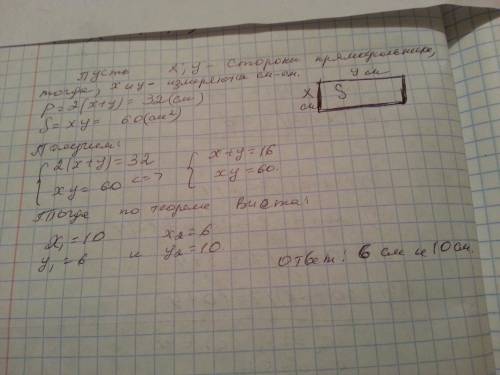 Пусть x, y - стороны прямоугольника,
тогда, x и y - измеряются см-ом.
P = 2(x+y) = 32 (см)
S = xy = 60 (см²)
y см
x см
S
Получим:
{ 2(x+y) = 32 <=> { x+y = 16
{ xy = 60 { xy = 60.
Тогда по теореме Виета:
x₁ = 10 и x₂ = 6
y₁ = 6 y₂ = 10
Ответ: 6 см и 10 см.